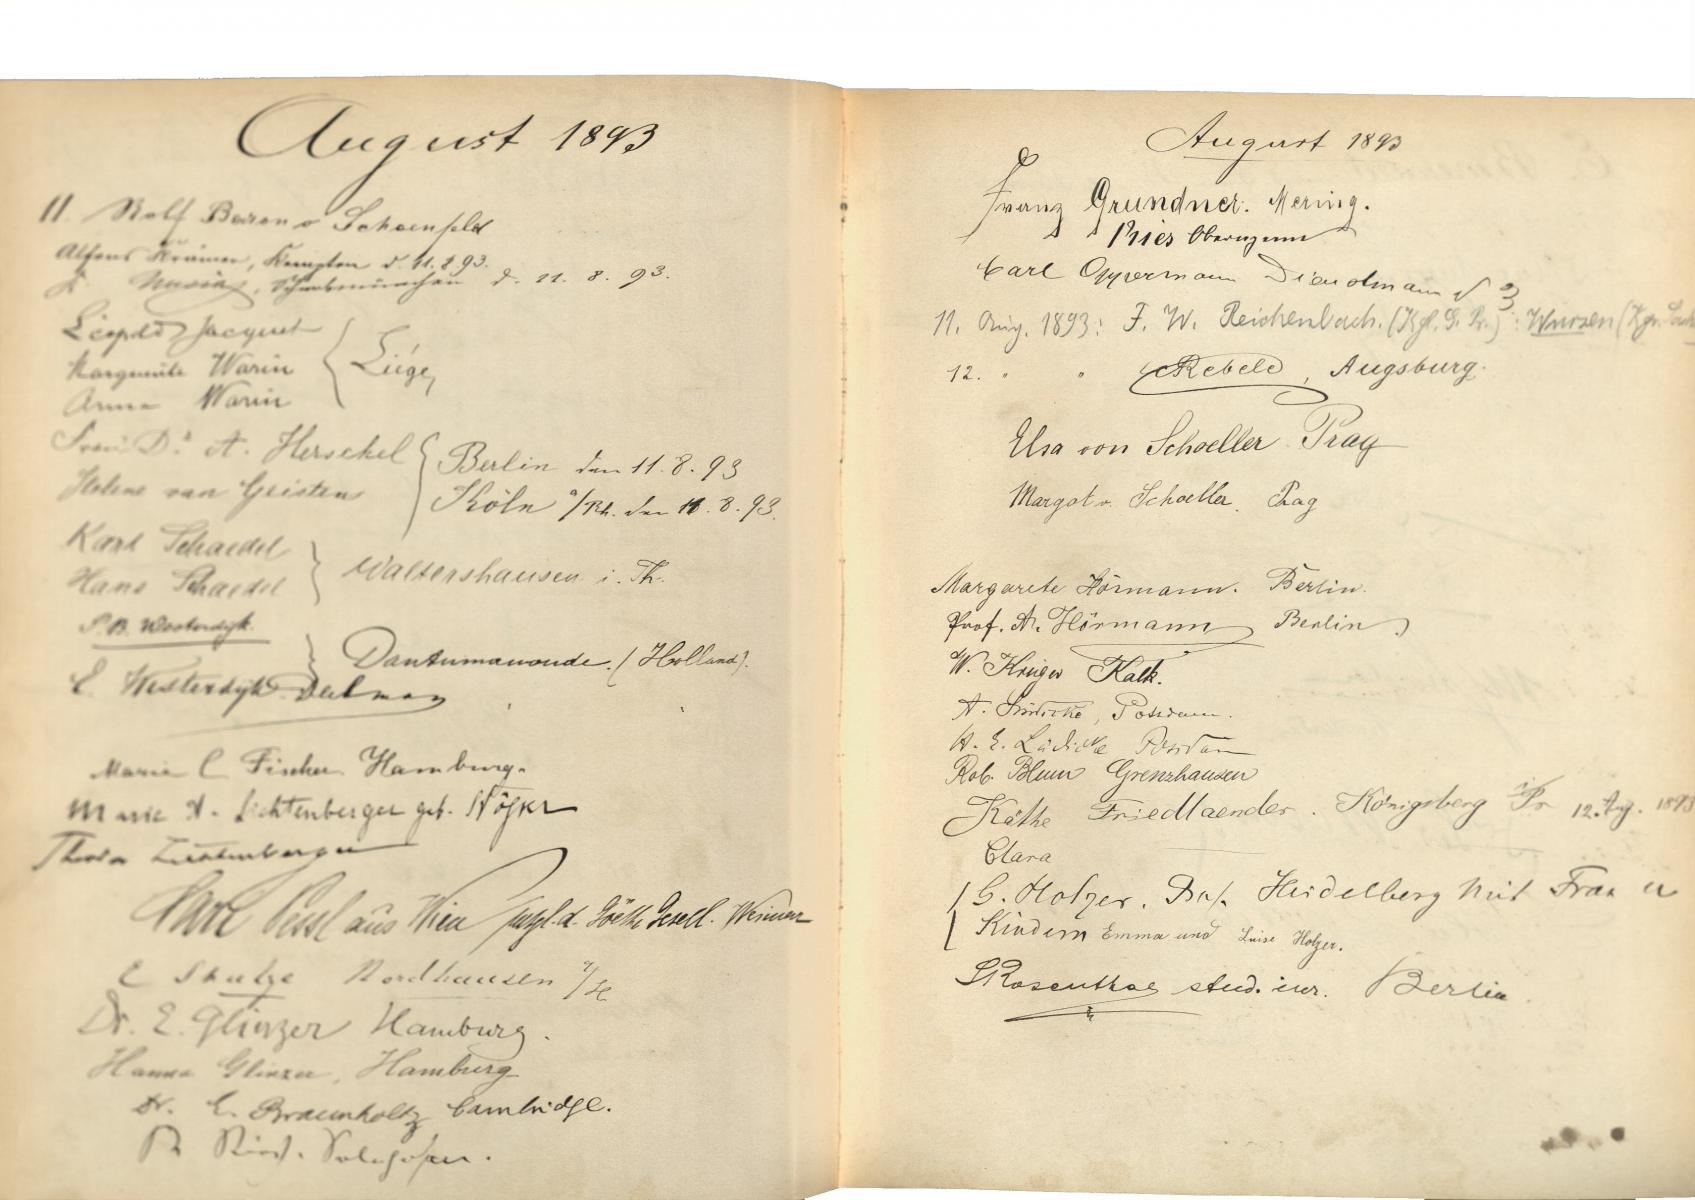 August 1893
11. Rolf Baron v Schoenfeld
Alfons Krämer, Kempten d. 11.8.93.
Schwabmünchen d. 11. 8. 93.
Léopold Jacquet
Marguerite Warin
Liége,
Anna Warin
Frau Dr. A. Herschel
Berlin den 11.8.93
Helene van Geisten
Köln a/Rh. den 11.8.93.
Karl Schaedel
Hans Schaedel
Waltershausen i. Th.
P.B. Westerdijk.
Dantumawoude. (Holland).
E. Westerdijk
Marie C Fischer. Hamburg.
Marie A. Lichtenberger geb.
Theodor Lichtenberger
Carl aus Wien d. Göthe Gesell. Weimar
E Schulze Nordhausen a/H
Dr. E. Glinzer Hamburg.
Hanna Glinzer, Hamburg
Dr. E. Braunholtz Cambridge.
August 1893
Franz Grundner. Mering.
Ries Obernzenn
Carl Oppermann Dienstmann № 3
11. Aug. 1893: F. W. Reichenbach. (Kgl. G. Pr.): Wurzen (Kgr. Sach
12. " " Rebele, Augsburg.
Elsa von Schoeller Prag
Margot v. Schoeller. Prag
Margarete Hörmann. Berlin.
Prof. A. Hörmann Berlin
W. Krüger Kalk.
A. Potsdam.
A. E. Lüdicke Potsdam
Rob. Blum Grenzhausen
Käthe Friedlaender. Königsberg i Pr 12. Aug. 1893
Clara
G. Holzer, Prof. Heidelberg mit Frau u
Kindern Emma und Luise Holzer.
S Rosenthal stud. iur. Berlin.